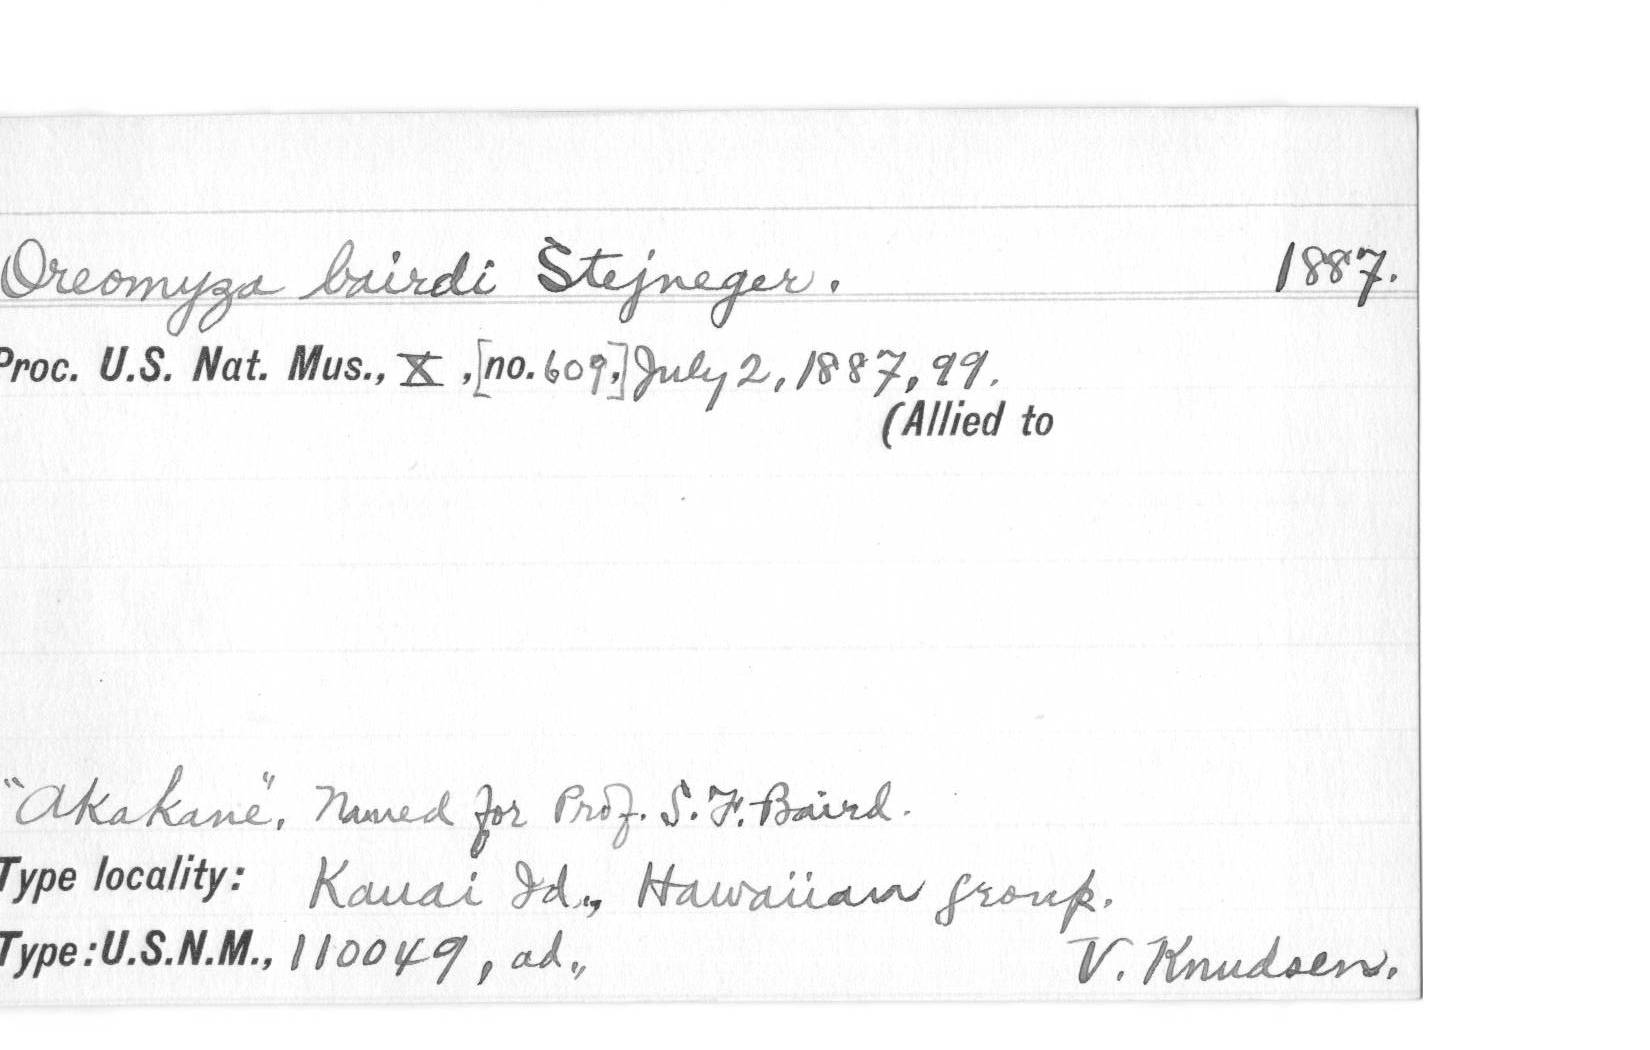 Oreomyza bairdi Stejneger. 1887.
Proc. U.S. Nat. Mus., X, [no. 609,] July 2, 1887, 99.
(Allied to
"Akakane", Named for Prof. S. F. Baird.
Type locality: Kauai Id., Hawaiian group.
Type: U.S.N.M., 110049, ad., V. Knudsen.